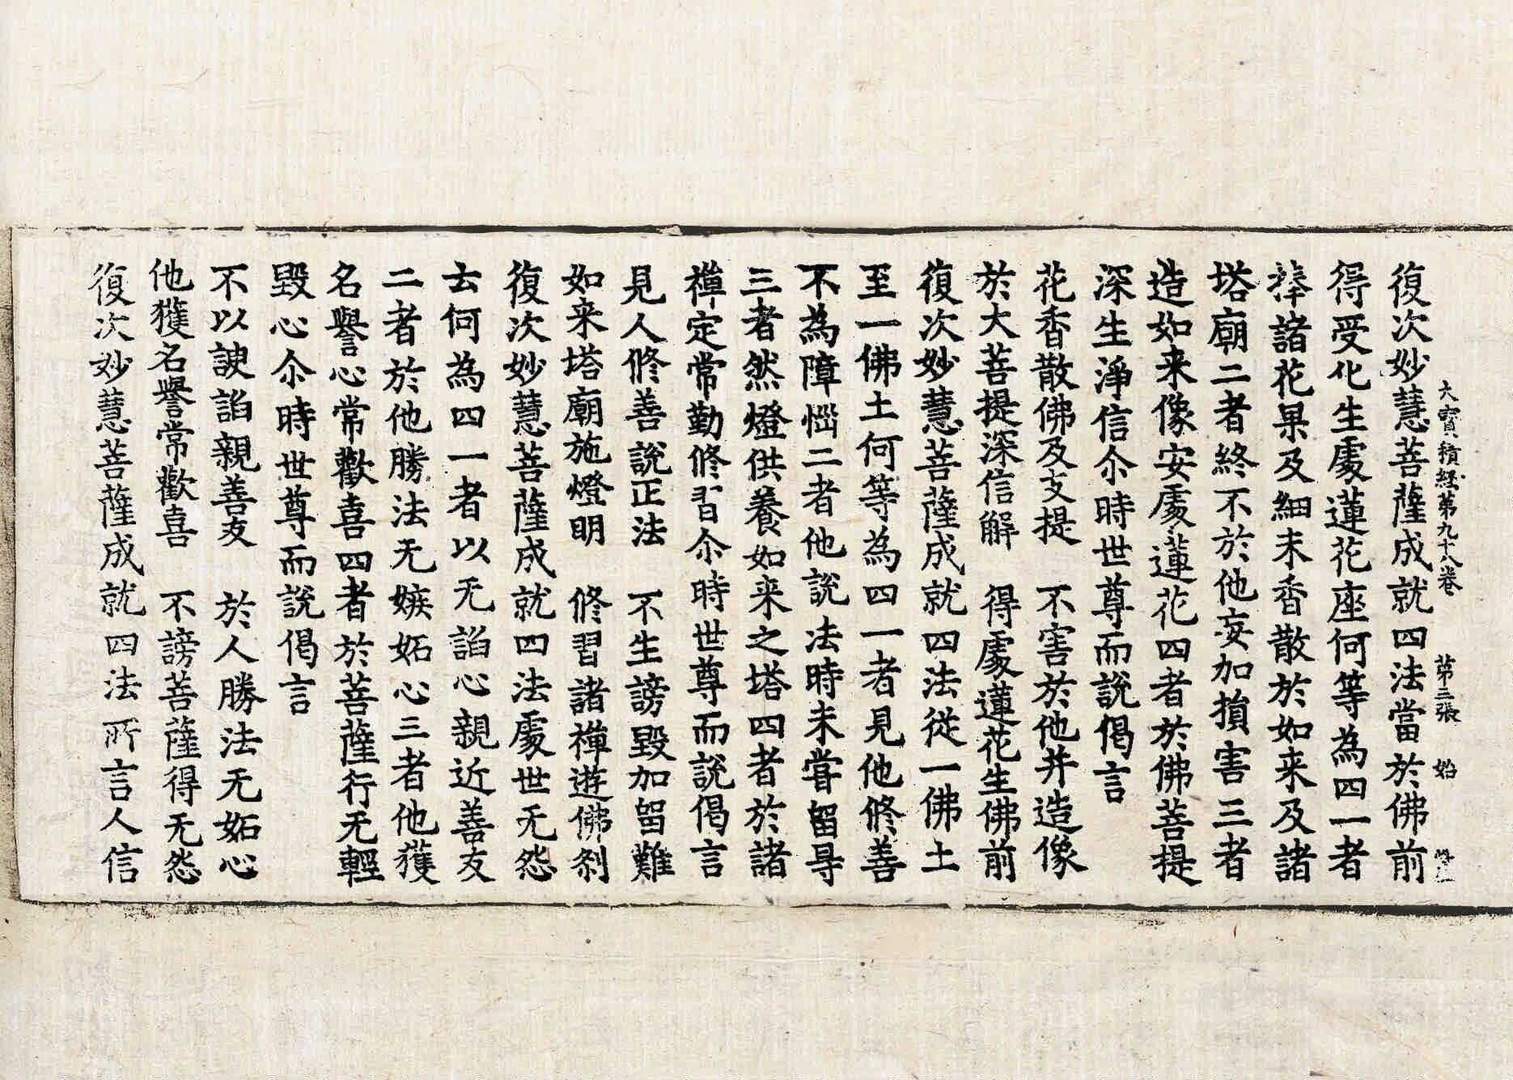 大寳積經第九十八卷 第三張 始
復次妙慧菩薩成就四法當於佛前
得受化生處蓮花座何等為四一者
捧諸花果及細末香散於如来及諸
塔廟二者終不於他妄加損害三者
造如来像安處蓮花四者於佛菩提
深生淨信尒時世尊而說偈言
花香散佛及支提 不害於他并造像
於大菩提深信解 得處蓮花生佛前
復次妙慧菩薩成就四法從一佛土
至一佛土何等為四一者見他修善
不為障惱二者他說法時未甞留㝵
三者然燈供養如来之塔四者於諸
禪定常勤修習尒時世尊而說偈言
見人修善說正法 不生謗毀加留難
如来塔廟施燈明 修習諸禪遊佛刹
復次妙慧菩薩成就四法處世无怨
云何為四一者以无諂心親近善友
二者於他勝法无嫉妬心三者他獲
名譽心常歡喜四者於菩薩行无輕
毀心尒時世尊而說偈言
不以諛諂親善友 於人勝法无妬心
他獲名譽常歡喜 不謗菩薩得无怨
復次妙慧菩薩成就四法所言人信